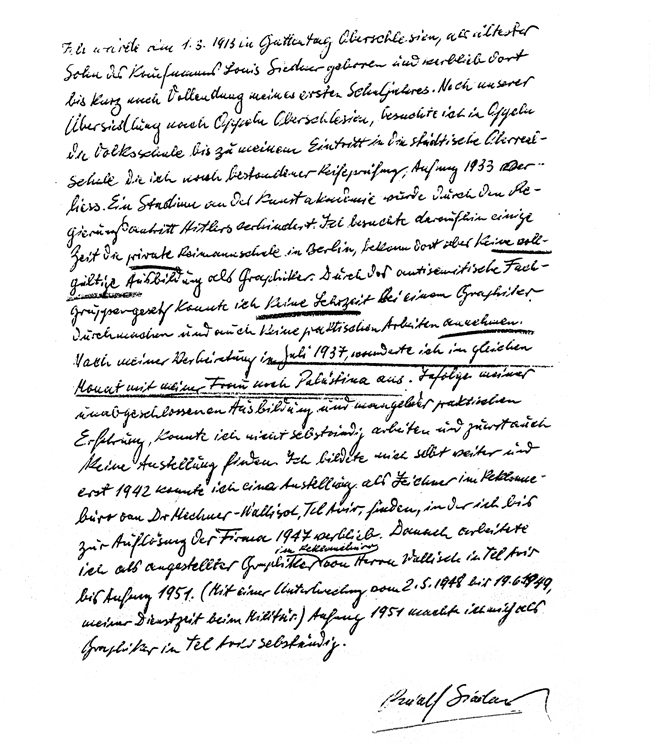 Ich wurde am 1.3.1913 in Guttentag Oberschlesien, als ältester
Sohn des Kaufmanns Louis Siedner geboren und verblieb dort
bis kurz nach Vollendung meines ersten Schuljahres. Nach unserer
Übersiedlung nach Oppeln Oberschlesien, besuchte ich in Oppeln
die Volksschule bis zu meinem Eintritt in die städtische Oberreal-
Schule die ich nach bestandener Reifeprüfung, Anfang 1933 ver-
liess. Ein Studium an der Kunstakademie wurde durch den Re-
gierungsantritt Hitlers verhindert. Ich besuchte daraufhin einige
Zeit die private Reimannschule in Berlin, bekam dort aber keine voll-
gültige Ausbildung als Graphiker. Durch das antisemitische Fach-
gruppengesetz konnte ich keine Lehrzeit bei einem Graphiker
durchmachen und auch keine praktischen Arbeiten annehmen.
Nach meiner Verheiratung im Juli 1937, wanderte ich im gleichen
Monat mit meiner Frau nach Palästina aus. Infolge meiner
unabgeschlossenen Ausbildung und mangels praktischen
Erfahrung, konnte ich nicht selbständig arbeiten und zuerst auch
keine Anstellung finden. Ich bildete mich selbst weiter und
erst 1942 konnte ich eine Anstellung als Zeichner im Reklame-
büro von Dr Mechner-Wallisch, Tel Aviv, finden, in der ich bis
zur Auflösung der Firma 1947 verblieb. Danach arbeitete
ich als angestellter Graphiker im Reklamebüro von Herrn Wallisch in Tel Aviv
bis Anfang 1951. (Mit einer Unterbrechung vom 2.5.1948 bis 19.6.1949,
meiner Dienstzeit beim Militär.) Anfang 1951 machte ich mich als
Graphiker in Tel Aviv selbständig.
Rudolf Siedner